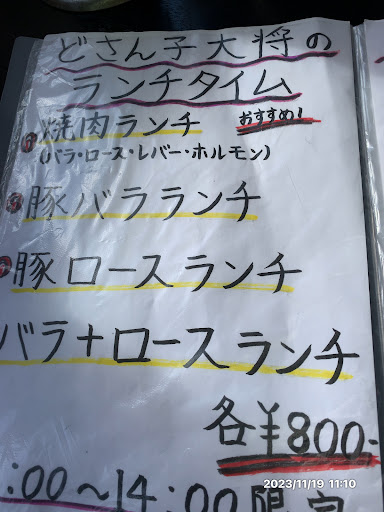 どさん子大将の
ランチタイム
焼肉ランチ おすすめ!
(バラ・ロース・レバー・ホルモン)
豚バラランチ
豚ロースランチ
バラ+ロースランチ
各¥800-
:00〜14:00限定
2023/11/19 11:10